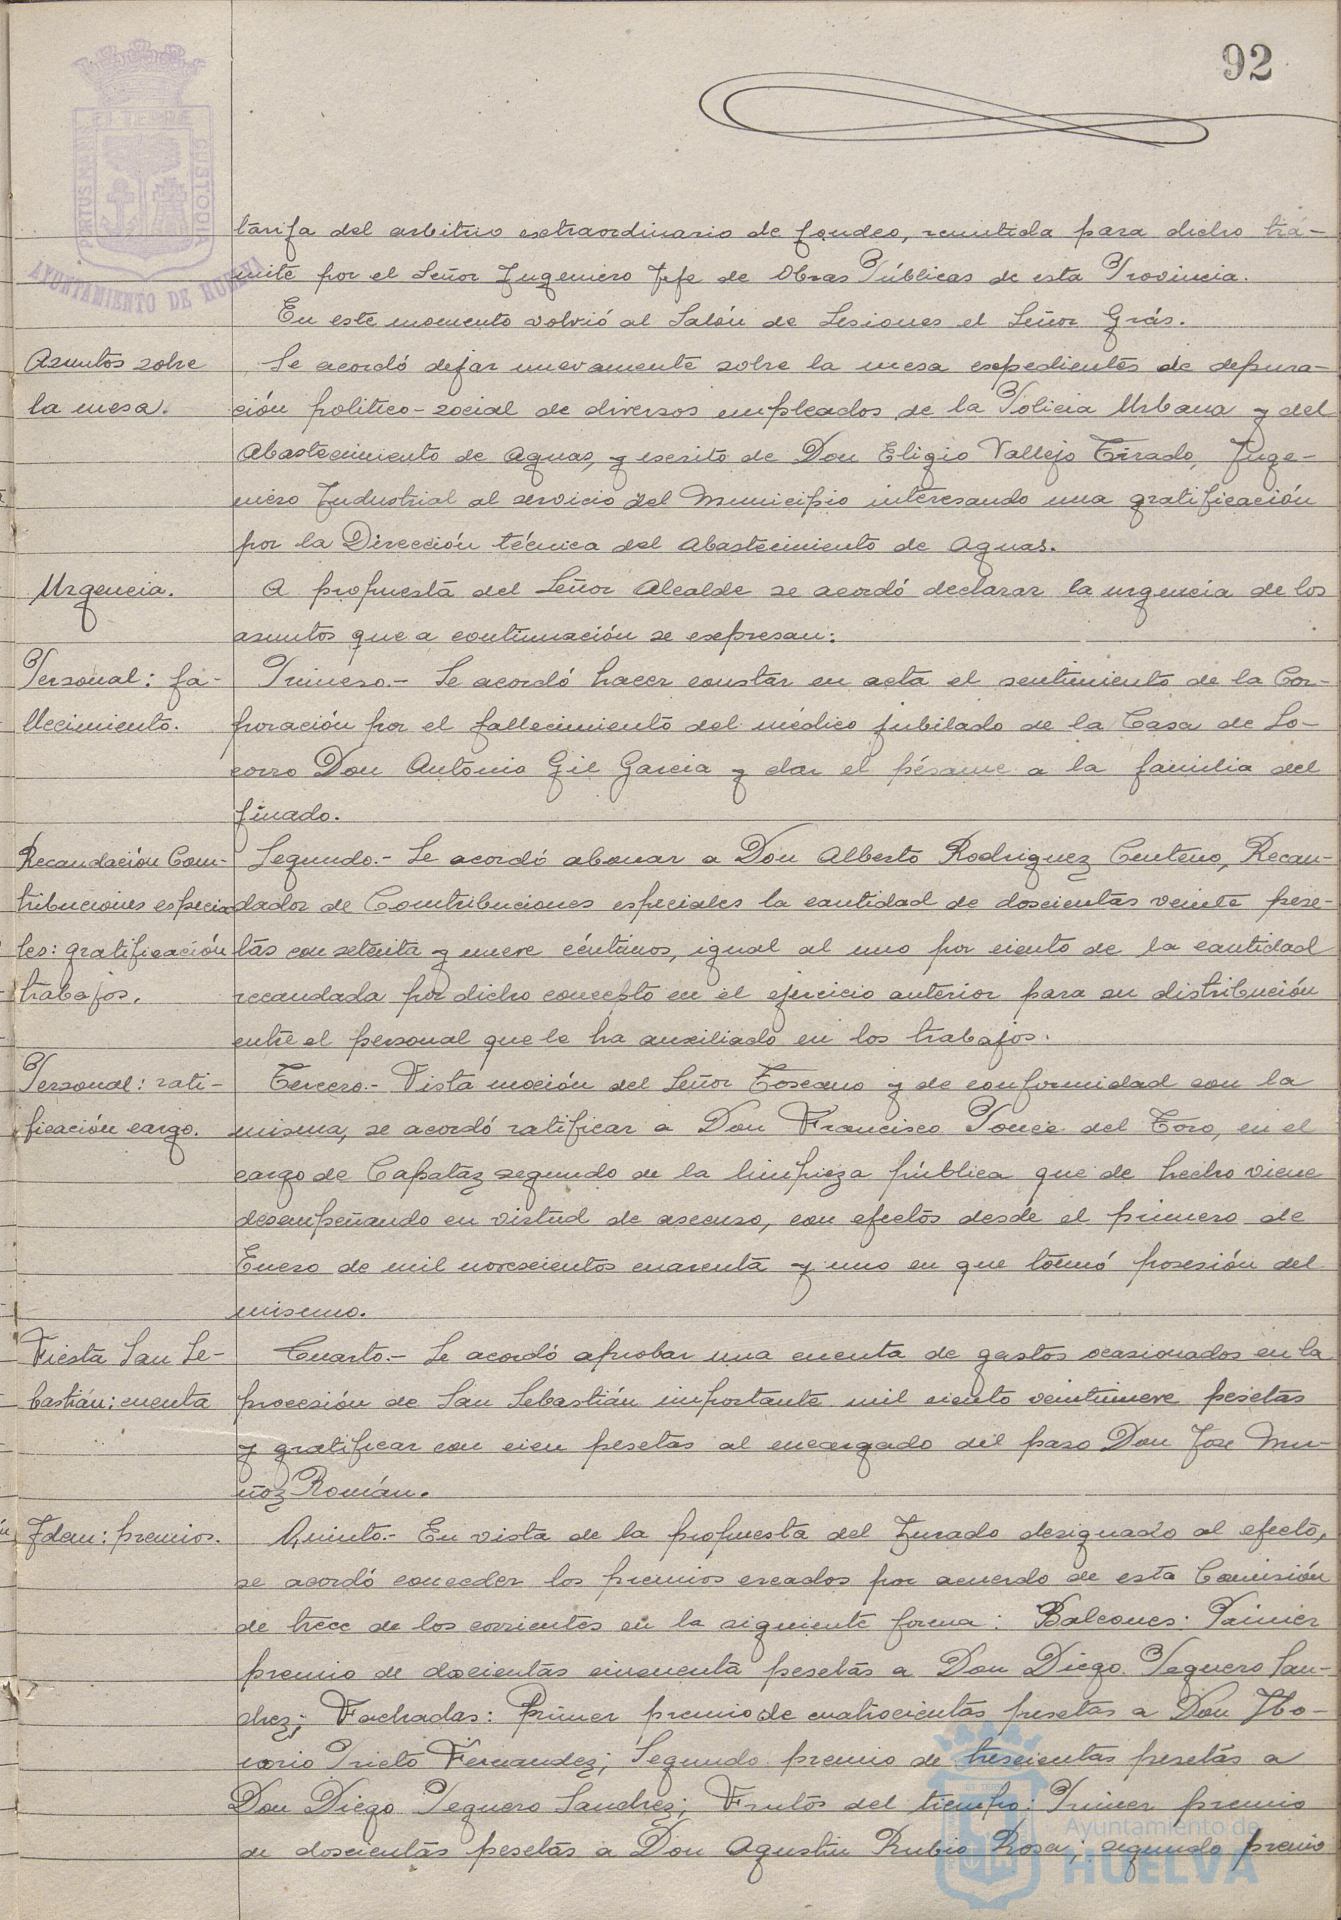 92
PORTUS MARIS ET TERRE CUSTODIA
AYUNTAMIENTO DE HUELVA
tarifa del arbitrio extraordinario de fondeo, remitida para dicho trá-
mite por el Señor Ingeniero Jefe de Obras Públicas de esta Provincia.
En este momento volvió al Salón de Sesiones el Señor Grás.
Asuntos sobre
la mesa.
Se acordó dejar nuevamente sobre la mesa expedientes de depura-
ción político-social de diversos empleados de la Policia Urbana y del
Abastecimiento de Aguas, y escrito de Don Eligio Vallejo Tirado, Inge-
niero Industrial al servicio del Municipio interesando una gratificación
por la Dirección técnica del Abastecimiento de Aguas.
Urgencia.
A propuesta del Señor Alcalde se acordó declarar la urgencia de los
asuntos que a continuación se expresan:
Personal: fa-
llecimiento.
Primero.- Se acordó hacer constar en acta el sentimiento de la Cor-
poración por el fallecimiento del médico jubilado de la Casa de So-
corro Don Antonio Gil Garcia y dar el pésame a la familia del
finado.
Recaudación Con-
tribuciones especia-
les: gratificación
trabajos.
Segundo.- Se acordó abonar a Don Alberto Rodriguez Centeno, Recau-
dador de Contribuciones especiales la cantidad de doscientas veinte pese-
tas con setenta y nueve céntimos, igual al uno por ciento de la cantidad
recaudada por dicho concepto en el ejercicio anterior para su distribución
entre el personal que le ha auxiliado en los trabajos.
Personal: rati-
ficación cargo.
Tercero.- Vista moción del Señor Toscano y de conformidad con la
misma, se acordó ratificar a Don Francisco Ponce del Toro, en el
cargo de Capataz segundo de la limpieza pública que de hecho viene
desempeñando en virtud de ascenso, con efectos desde el primero de
Enero de mil novescientos cuarenta y uno en que tomó posesión del
mismo.
Fiesta San Se-
bastián: cuenta
Cuarto.- Se acordó aprobar una cuenta de gastos ocasionados en la
procesión de San Sebastián importante mil ciento veintinueve pesetas
y gratificar con cien pesetas al encargado del paso Don Jose Mu-
ñoz Román.
Idem: premios.
Quinto.- En vista de la propuesta del Jurado designado al efecto,
se acordó conceder los premios creados por acuerdo de esta Comisión
de trece de los corrientes en la siguiente forma: Balcones: Primer
premio de doscientas cincuenta pesetas a Don Diego Peguero San-
chez; Fachadas: Primer premio de cuatrocientas pesetas a Don Ho-
norio Prieto Fernandez; Segundo premio de trescientas pesetas a
Don Diego Peguero Sanchez; Frutos del tiempo: Primer premio
de doscientas pesetas a Don Agustin Rubio Rosa; segundo premio
Ayuntamiento de
HUELVA